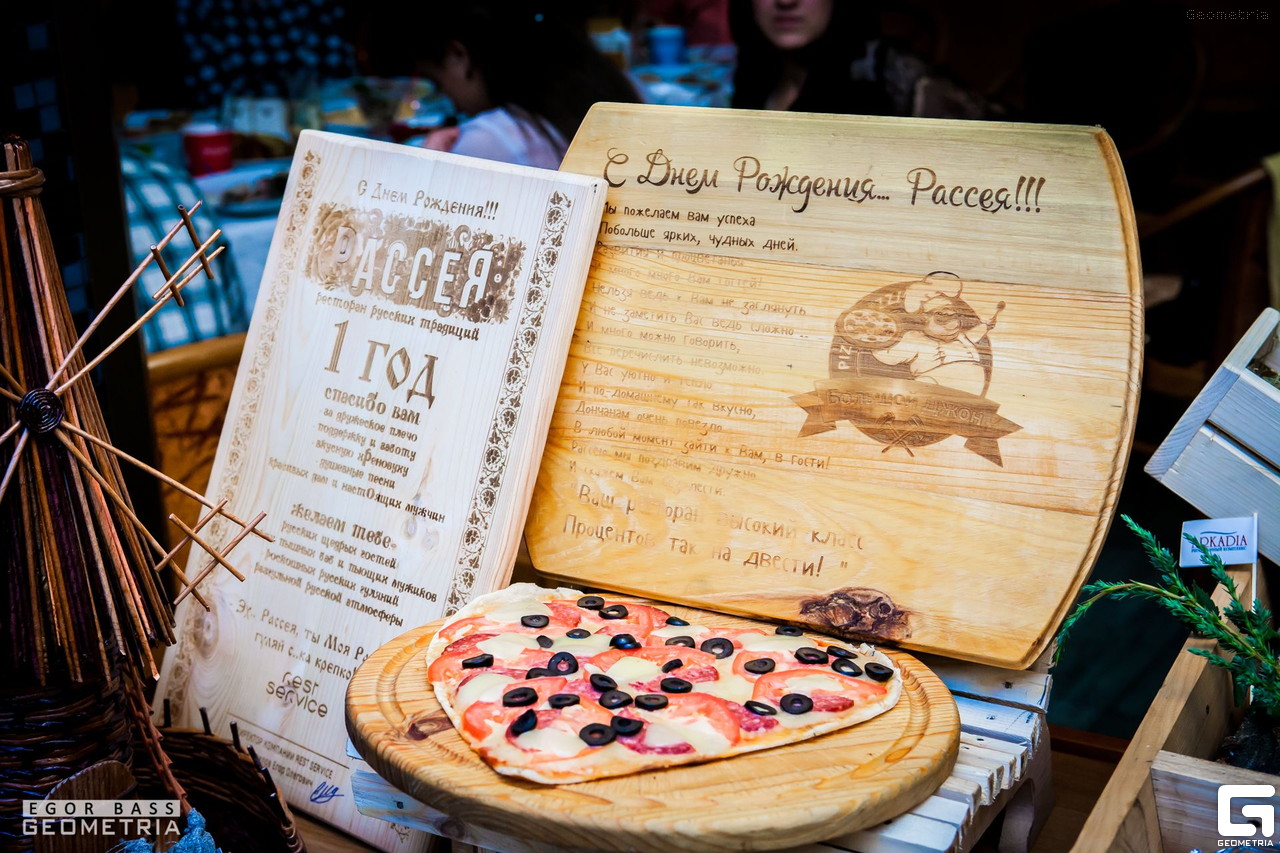 Geometria
С Днем Рождения!!!
РАССЕЯ
ресторан русских традиций
1 год
спасибо вам
за дружеское плечо
поддержку и заботу
вкусную хреновуху
душевные песни
красивых дам и настоящих мужчин
желаем тебе..
русских щедрых гостей
пышных баб и пьющих мужиков
роскошных русских гуляний
разгульной русской атмосферы
Эх.. Рассея, ты Моя
гуляй с..ка крепко
rest
service
ДИРЕКТОР КОМПАНИИ REST SERVICE
Егор Олегович
С Днем Рождения... Рассея!!!
Мы пожелаем вам успеха
Побольше ярких, чудных дней.
много много Вам гостей!
Нельзя ведь к Вам не заглянуть
не заметить Вас ведь сложно
И много можно говорить,
Все перечислить невозможно
У Вас уютно и тепло
И по-домашнему так вкусно,
Дончанам очень повезло
В любой момент зайти к Вам, в гости!
Рассею мы поздравим дружно
И скажем Вам
"Ваш ресторан высокий класс
Процентов так на двести! "
PIZZ
БОЛЬШОЙ ДЖОН
ARKADIA
EGOR BASS
GEOMETRIA
G
GEOMETRIA